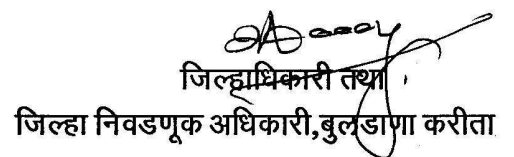 जिल्हाधिकारी तथा
जिल्हा निवडणूक अधिकारी,बुलडाणा करीता